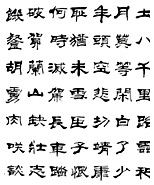 土八千里路雲和
月莫等閒白了少
年頭空悲切靖康
恥猶未雪臣子恨
何時滅駕長車踏
破賀蘭山缺壯志
饑餐胡虜肉笑談